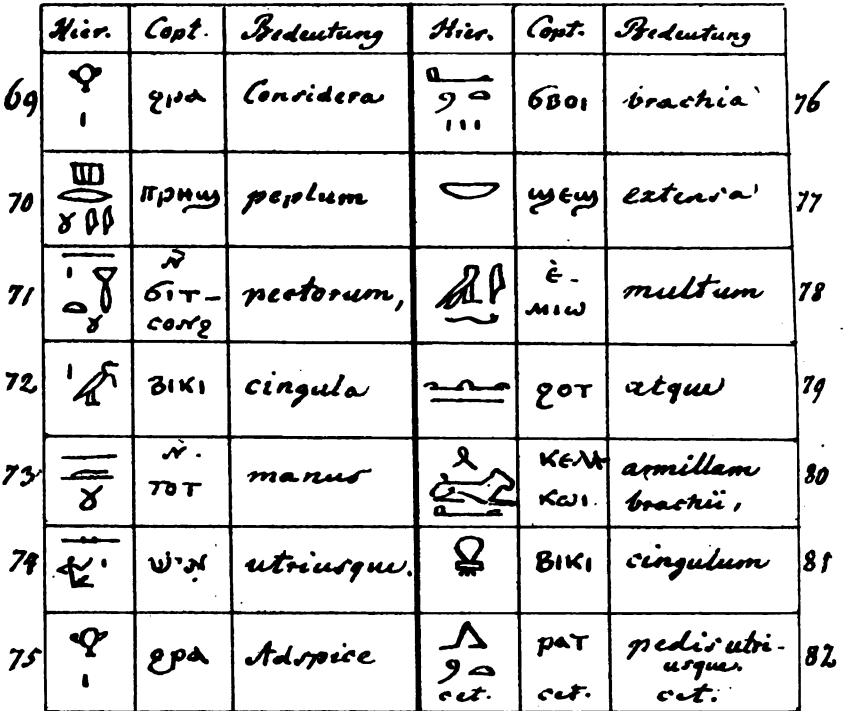 Hier. Copt. Bedeutung Hier. Copt. Bedeutung
69 ϩⲣⲁ Considera
ϭⲃⲟⲓ brachia 76
70 ⲡⲣⲏϣ peplum
ϣⲉϣ extensa 77
71 ⲛ̀
ϭⲓⲧ-
ⲥⲟⲛϩ
pectorum,
ⲉ̀-
ⲙⲓⲱ
multum 78
72 ⲃⲓⲕⲓ cingula
ϩⲟⲧ atque 79
73 ⲛ̀.
ⲧⲟⲧ
manus
ⲕⲱⲓ.
armillam
brachii,
80
74 אִישׁ utriusque.
ⲃⲓⲕⲓ cingulum 81
75 ϩⲣⲁ Adspice
cet.
ⲣⲁⲧ
cet.
pedis utri-
usque.
cet.
82